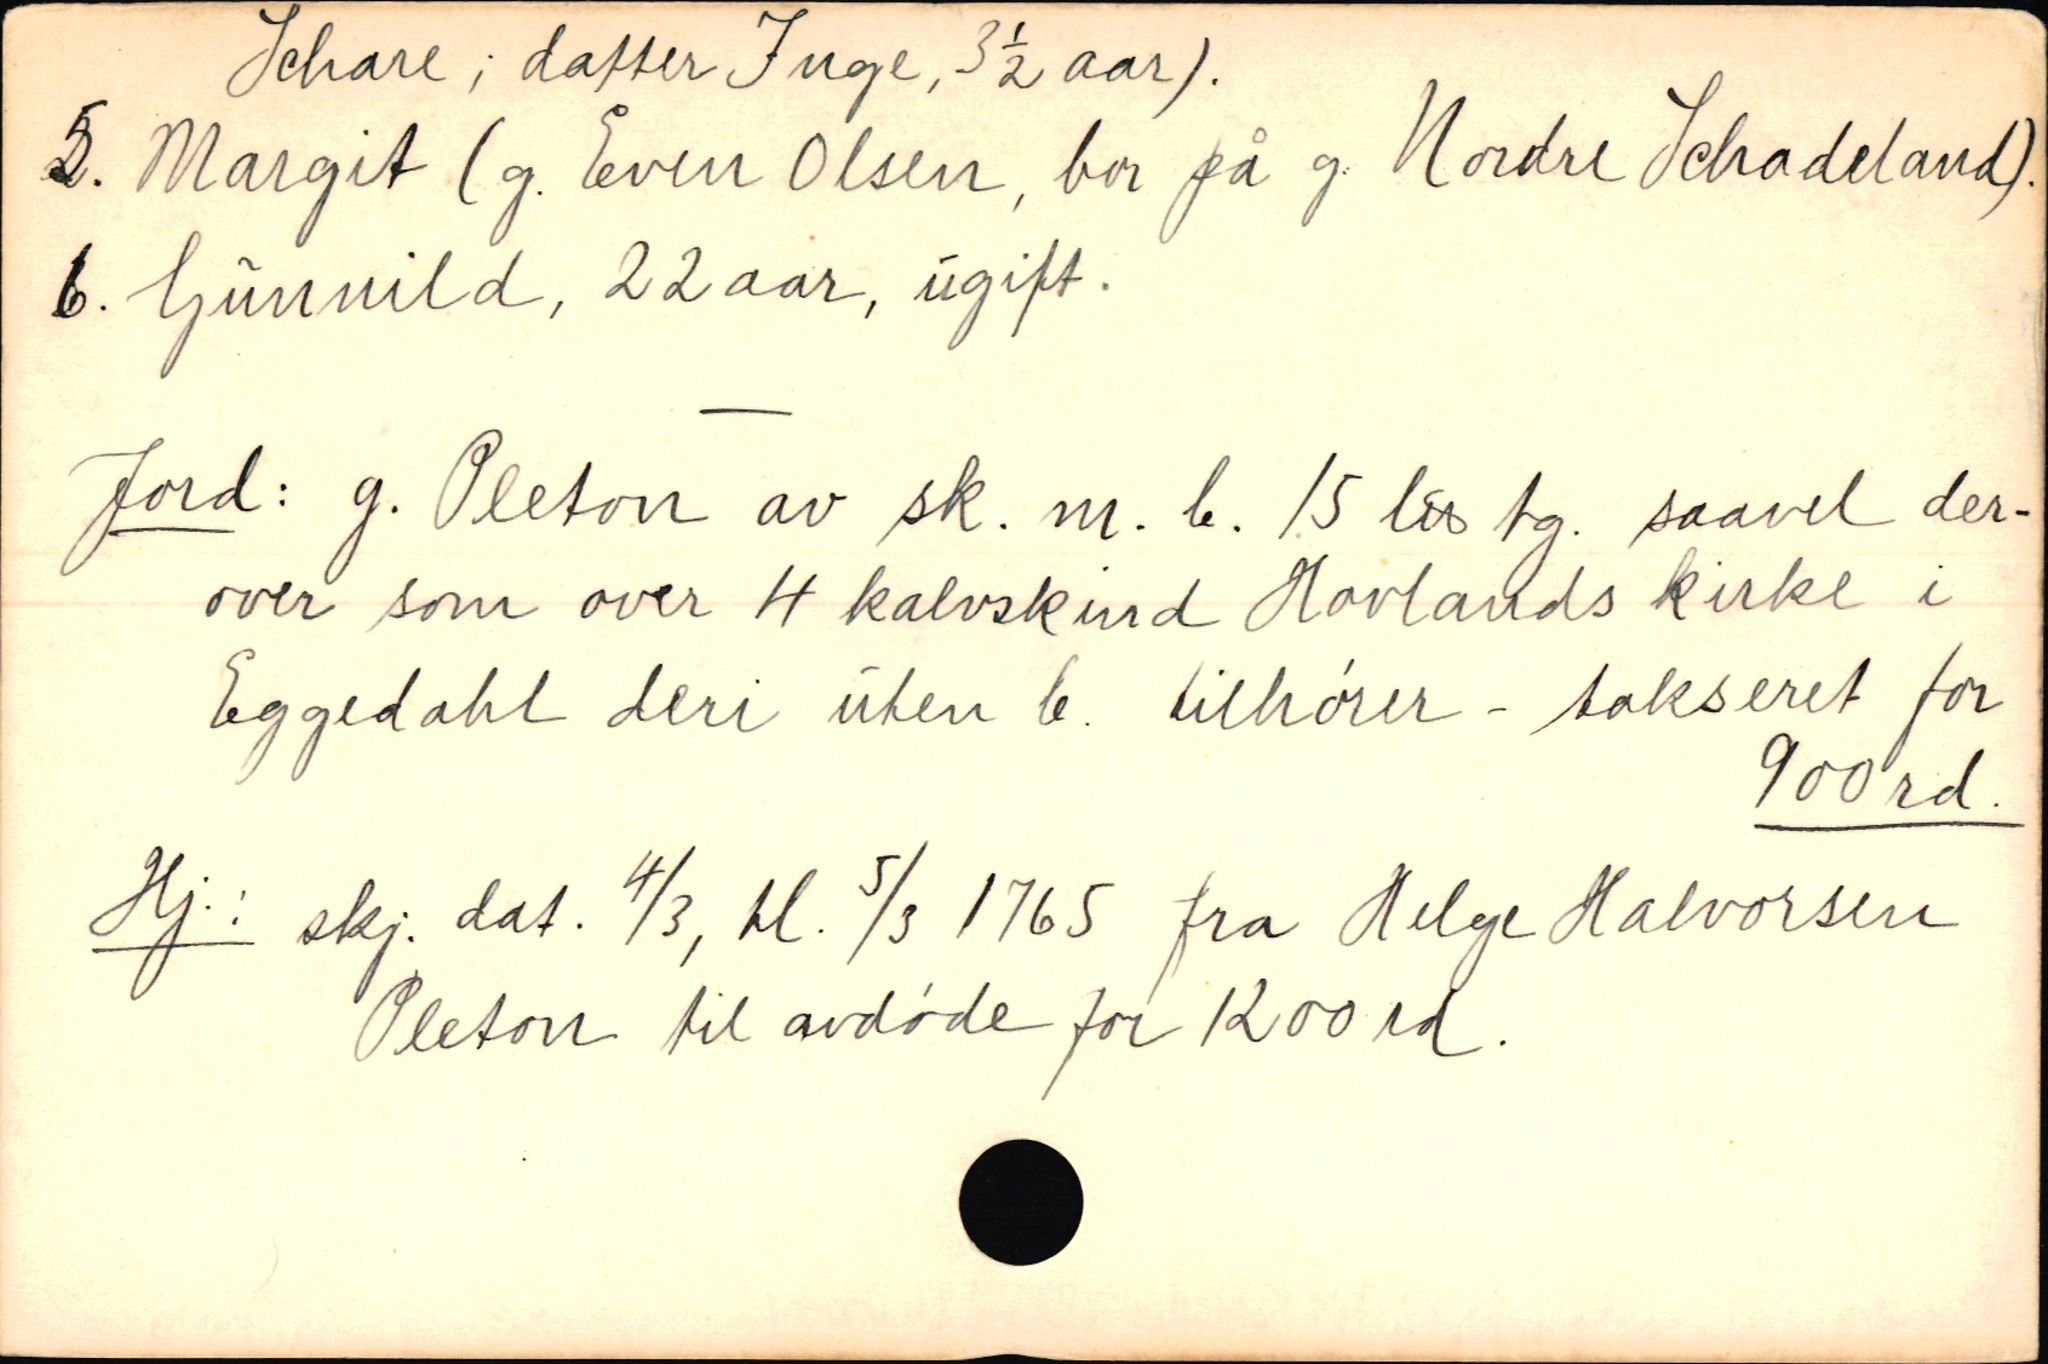 Schare; datter Inge, 3½ aar).
5. Margit (g. Even Olsen, bor på g. Nordre Schadeland).
6. Gunnild, 22 aar, ugift.
Jord: g. Pleton av sk. m. b. 15 lis tg. saavel der-
over som over 4 kalvskind Hovlands kirke i
Eggedahl deri uten b. tilhórer - takseret for
900 rd.
Hj.: skj. dat. 4/3, tl. 5/3 1765 fra Helge Halvorsen
Pleton til avdóde for 1200 rd.